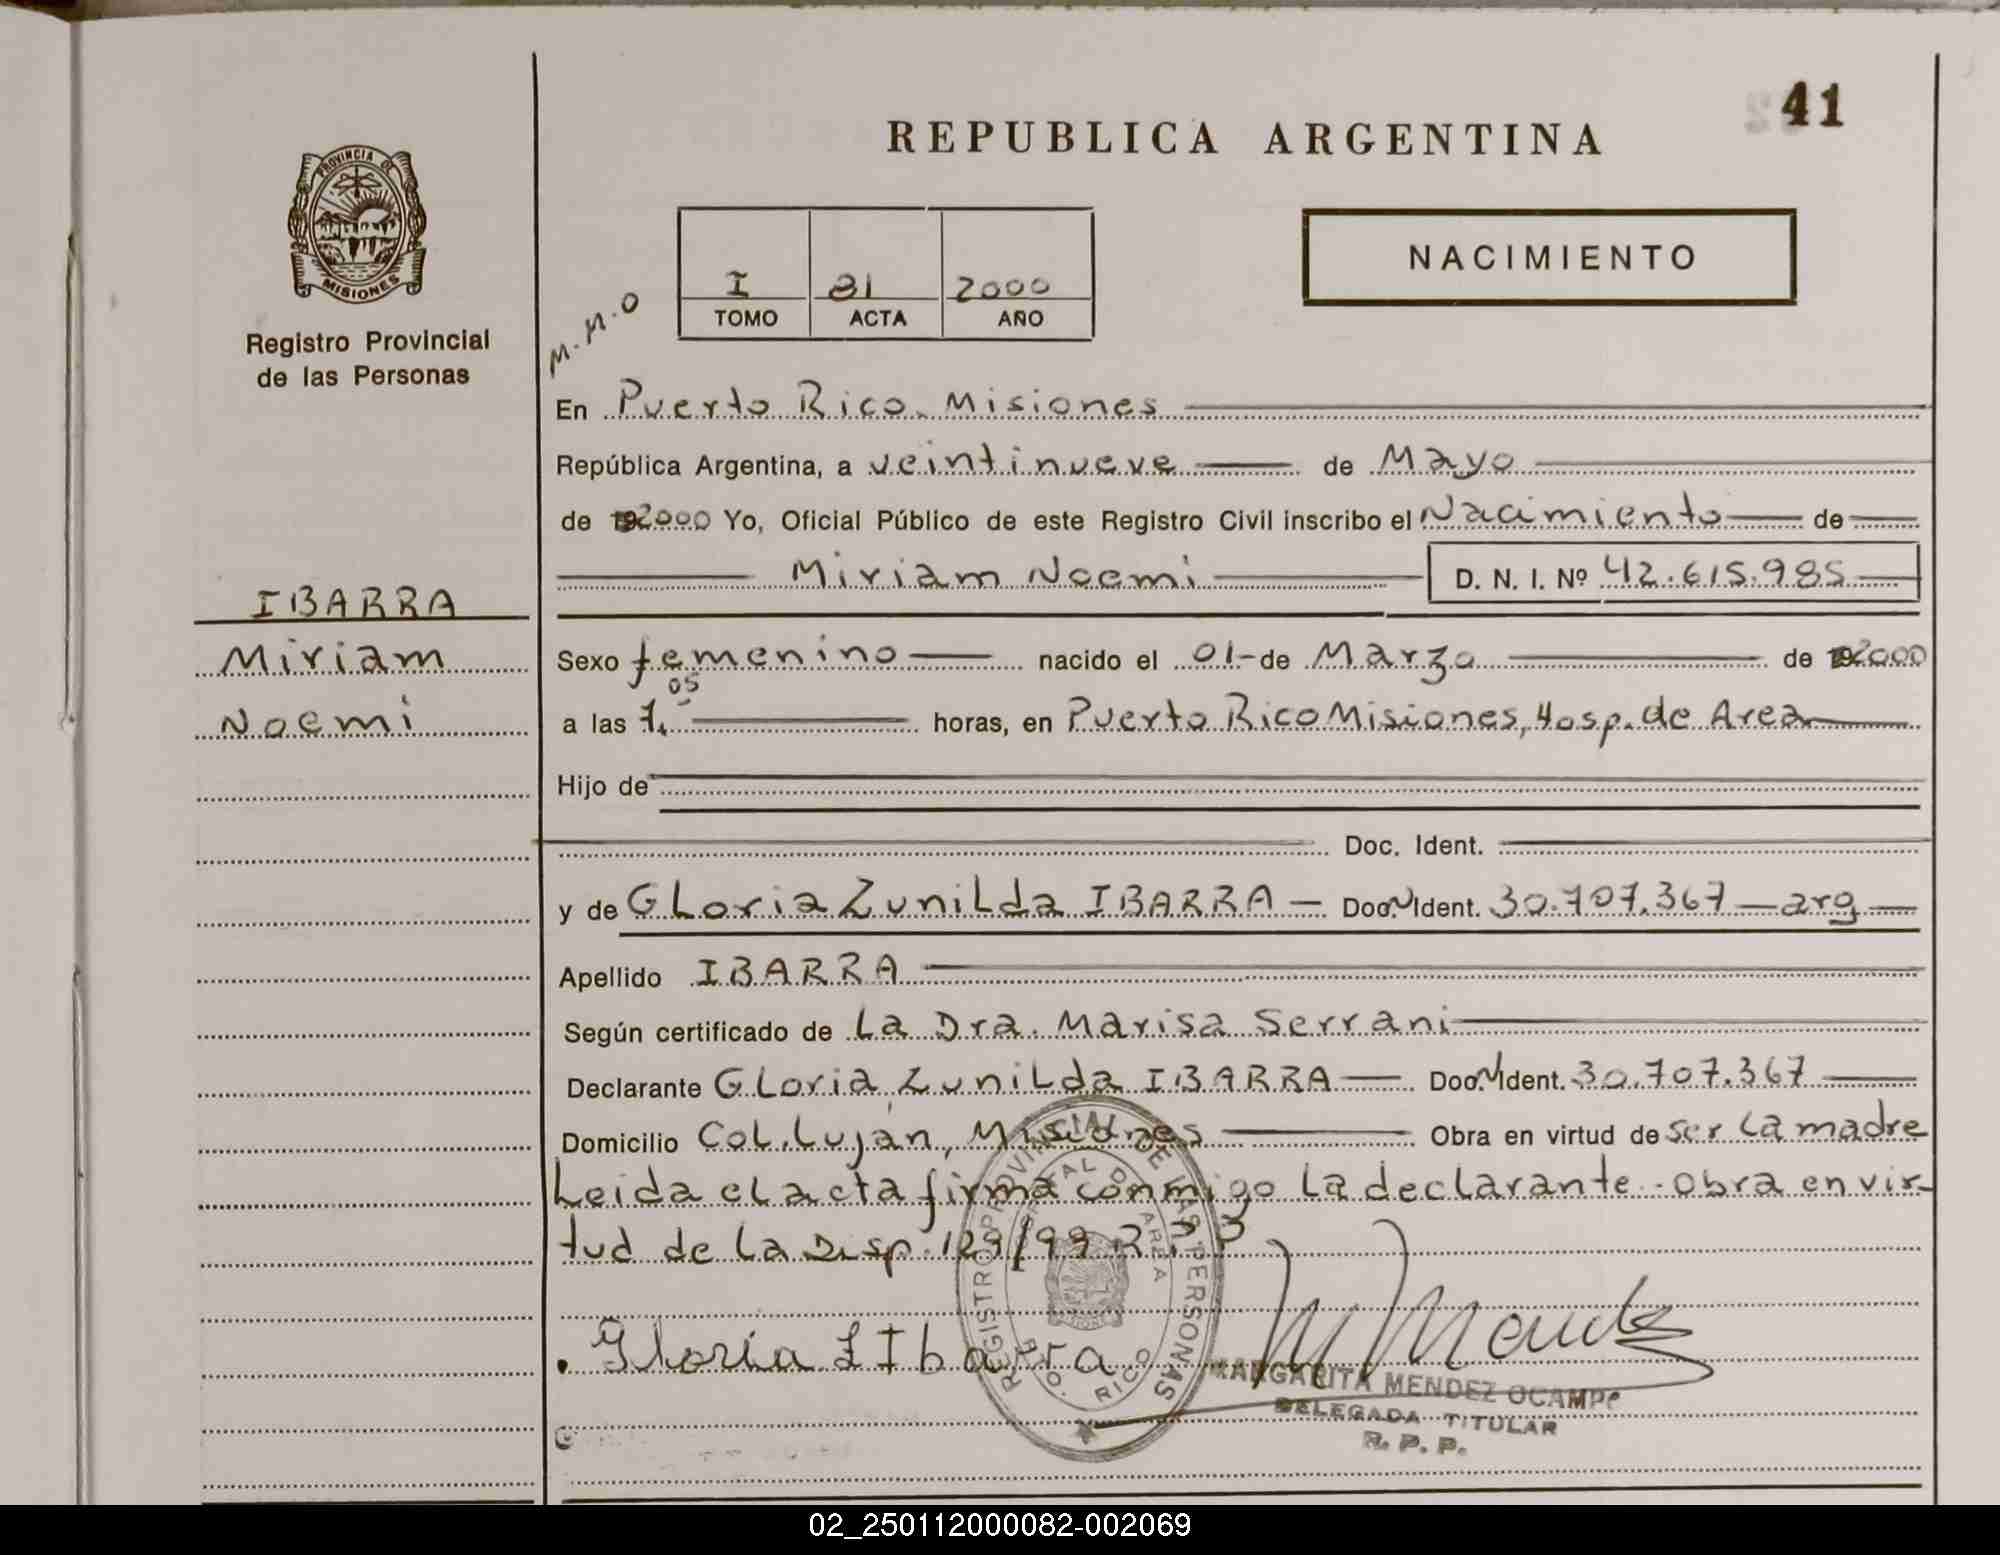 41
REPUBLICA ARGENTINA
PROVINCIA DE
MISIONES
Registro Provincial
de las Personas
I 81 2000
TOMO ACTA AÑO
NACIMIENTO
M.M.O
En Puerto Rico. Misiones
República Argentina, a veintinueve de Mayo
de 2000 Yo, Oficial Público de este Registro Civil inscribo el Nacimiento de
Miriam Noemi D. N. I. Nº 42.615.985
IBARRA
Miriam
Noemi
Sexo femenino nacido el 01- de Marzo de 2000
a las 7,05 horas, en Puerto Rico Misiones, Hosp. de Area
Hijo de
Doc. Ident.
y de GLoria ZuniLda IBARRA Doc. Ident. 30.707.367 arg
Apellido IBARRA
Según certificado de La Dra. Marisa Serrani
Declarante GLoria ZuniLda IBARRA Doc. Ident. 30.707.367
Domicilio CoL. Luján, Misiones Obra en virtud de ser La madre
Leida eL acta firma conmigo La declarante. Obra en vir-
tud de La Disp. 129/99
REGISTRO PROVINCIAL DE LAS PERSONAS
HOSPITAL DE AREA
PTO. RICO
Gloria Z Ibarra
M Mendez
MARGARITA MENDEZ OCAMPO
DELEGADA TITULAR
R. P. P.
02_250112000082-002069